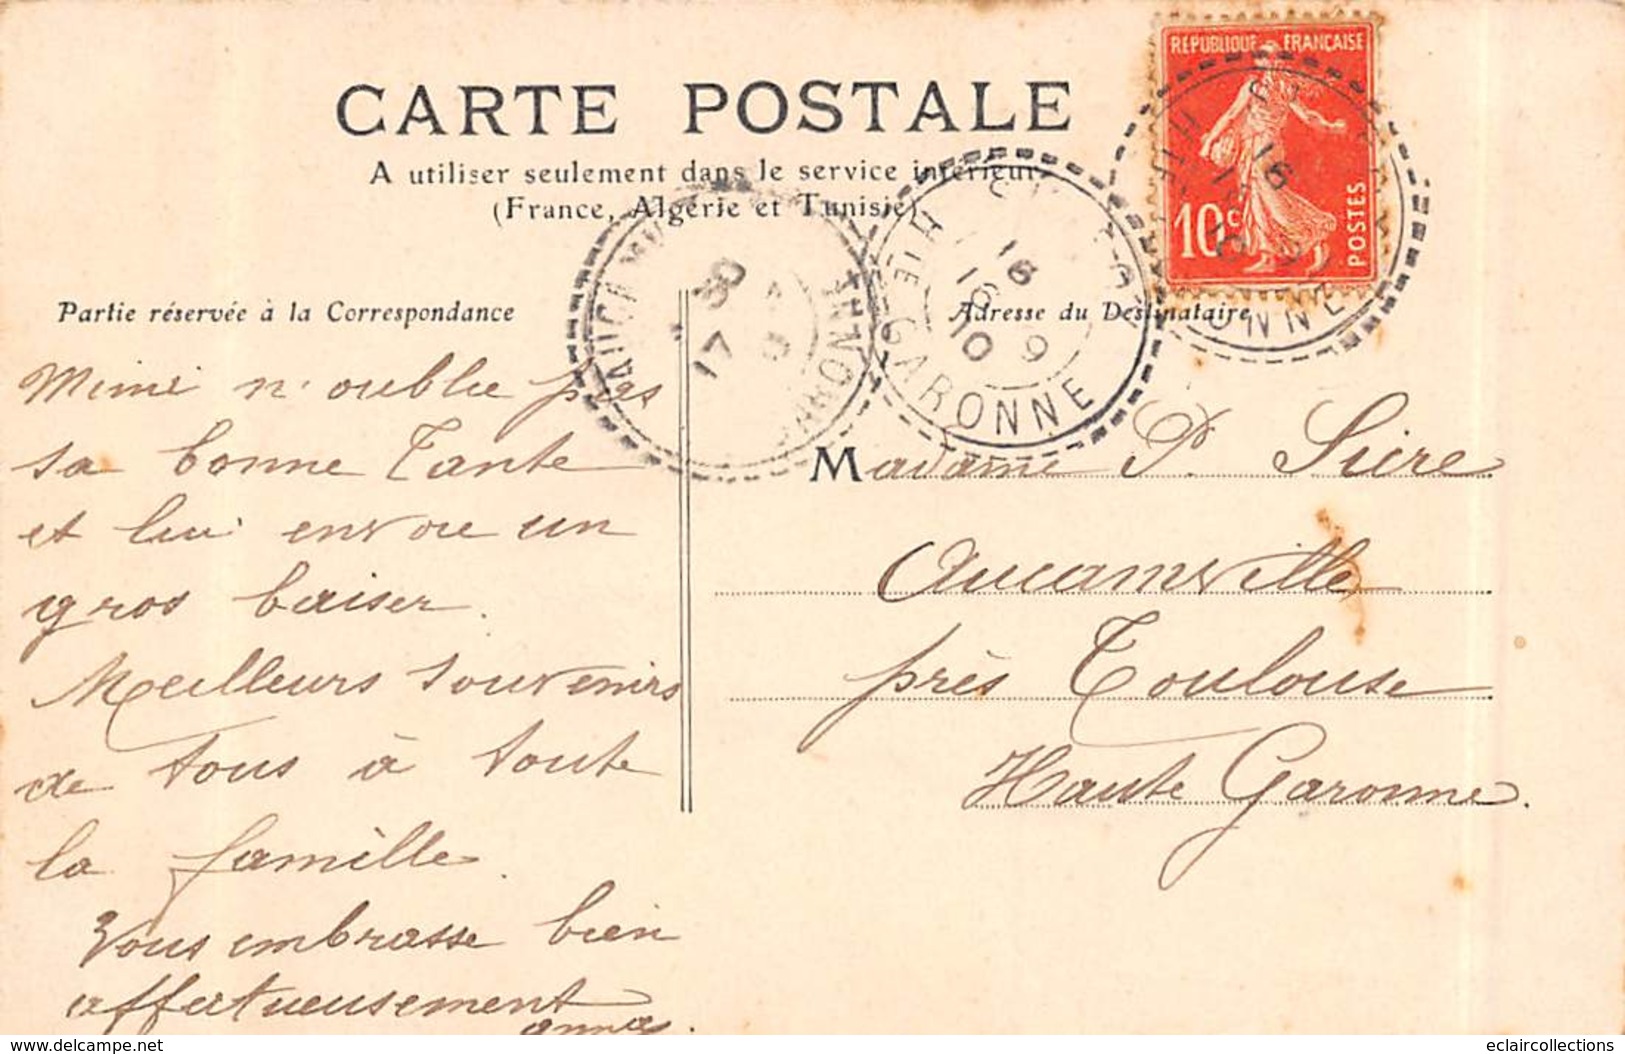 CARTE POSTALE
A utiliser seulement dans le service intérieur
(France, Algérie et Tunisie)
REPUBLIQUE FRANÇAISE
10c
POSTES
Partie réservée à la Correspondance
Adresse du Destinataire
Mimi n'oublie pas
sa bonne Tante
et lui envoie un
gros baiser.
Meilleurs souvenirs
de tous à toute
la famille.
Vous embrasse bien
affectueusement
Madame P. Sicre
Aucamville
près Toulouse
Haute Garonne.
16
16 9
10
HTE-GARONNE
30
17 9
GARONNE
16
delcampe.net
eclaircollections